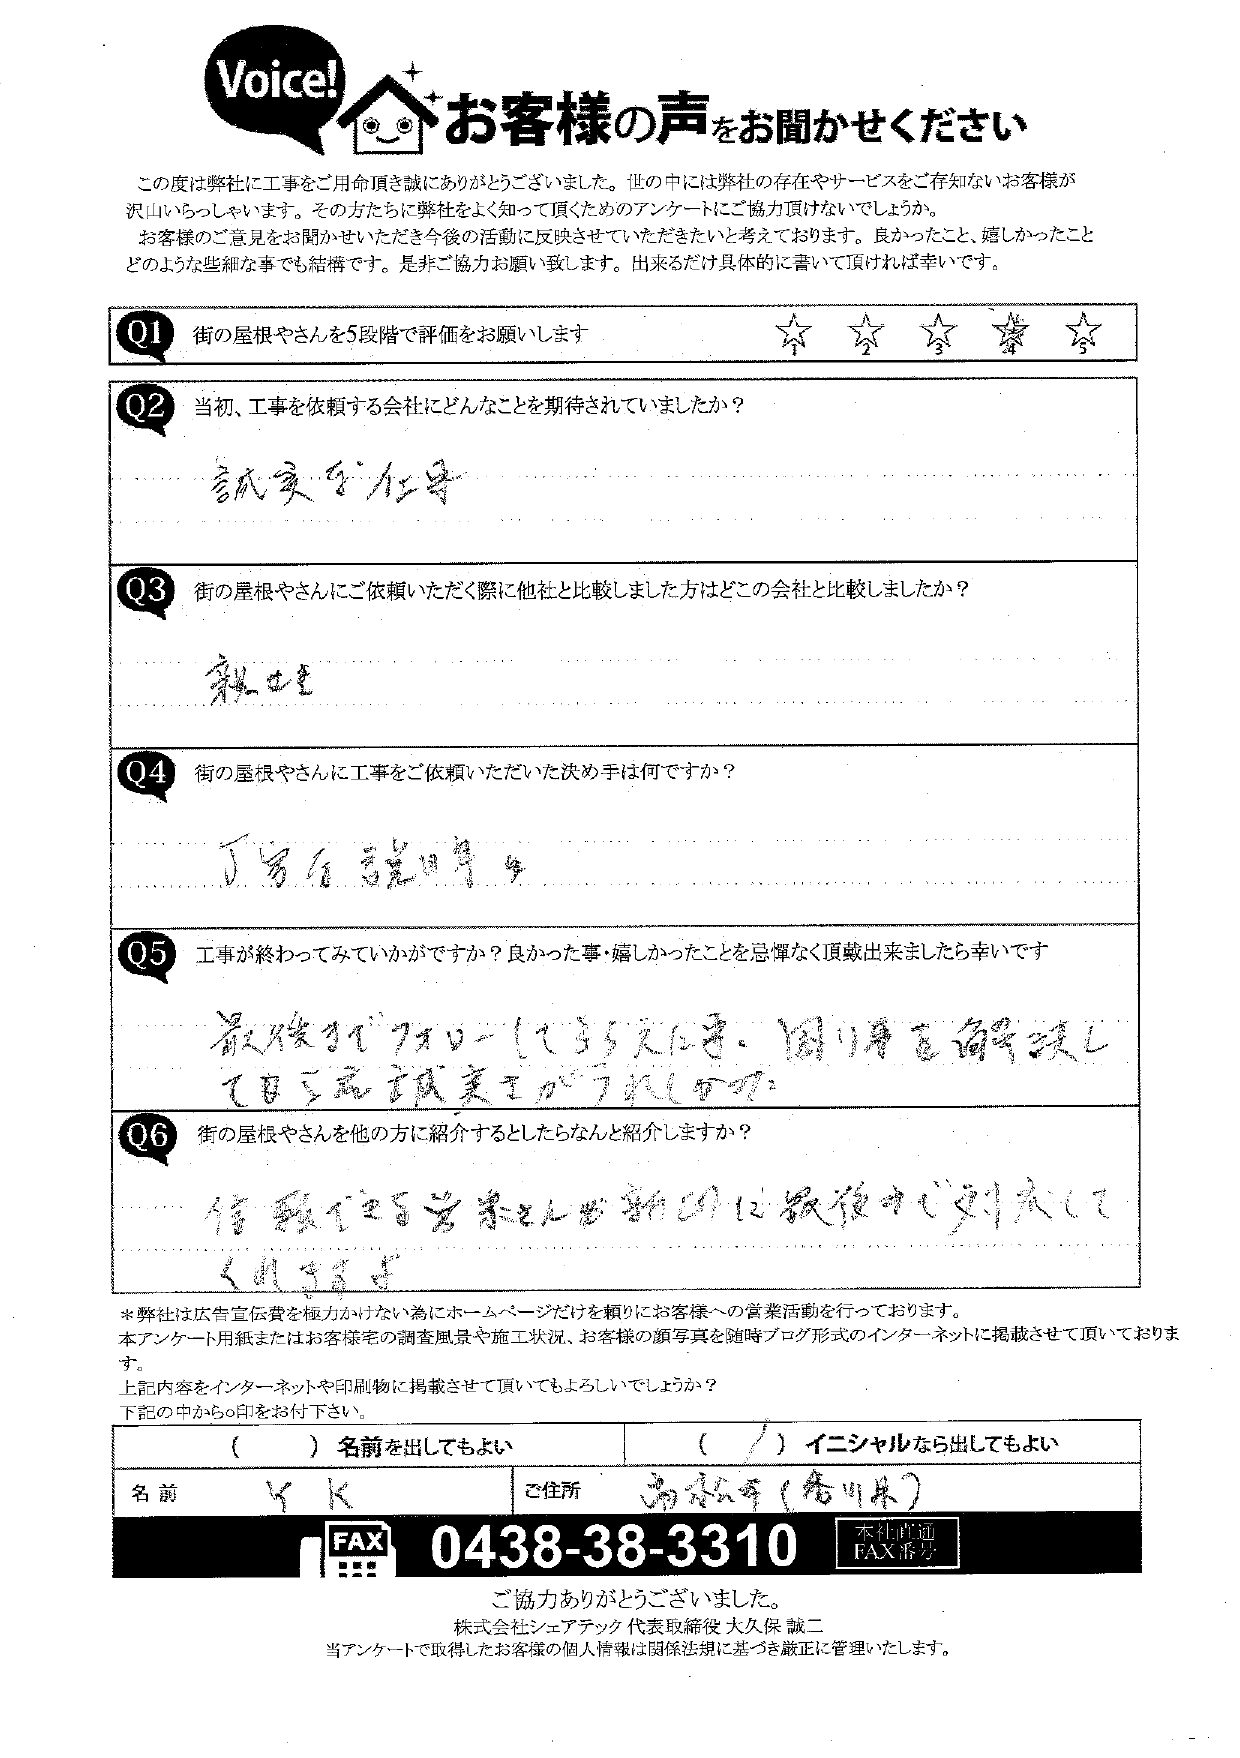 Voice!
お客様の声をお聞かせください
この度は弊社に工事をご用命頂き誠にありがとうございました。世の中には弊社の存在やサービスをご存知ないお客様が
沢山いらっしゃいます。その方たちに弊社をよく知って頂くためのアンケートにご協力頂けないでしょうか。
お客様のご意見をお聞かせいただき今後の活動に反映させていただきたいと考えております。良かったこと、嬉しかったこと
どのような些細な事でも結構です。是非ご協力お願い致します。出来るだけ具体的に書いて頂ければ幸いです。
Q1 街の屋根やさんを5段階で評価をお願いします ☆1 ☆2 ☆3 ☆4 ☆5
Q2 当初、工事を依頼する会社にどんなことを期待されていましたか？
誠実な仕事
Q3 街の屋根やさんにご依頼いただく際に他社と比較しました方はどこの会社と比較しましたか？
Q4 街の屋根やさんに工事をご依頼いただいた決め手は何ですか？
丁寧な説明
Q5 工事が終わってみていかがですか？良かった事・嬉しかったことを忌憚なく頂戴出来ましたら幸いです
最後までフォローしてもらえた事、困り事を解決し
誠実さがうれしかった
Q6 街の屋根やさんを他の方に紹介するとしたらなんと紹介しますか？
信頼できる営業さんが 最後まで対応して
くれますよ
＊弊社は広告宣伝費を極力かけない為にホームページだけを頼りにお客様への営業活動を行っております。
本アンケート用紙またはお客様宅の調査風景や施工状況、お客様の顔写真を随時ブログ形式のインターネットに掲載させて頂いておりま
す。
上記内容をインターネットや印刷物に掲載させて頂いてもよろしいでしょうか？
下記の中から○印をお付下さい。
（　　）名前を出してもよい （　　）イニシャルなら出してもよい
名前 Y K ご住所 高松市（香川県）
FAX 0438-38-3310 本社直通
FAX番号
ご協力ありがとうございました。
株式会社シェアテック 代表取締役 大久保 誠二
当アンケートで取得したお客様の個人情報は関係法規に基づき厳正に管理いたします。